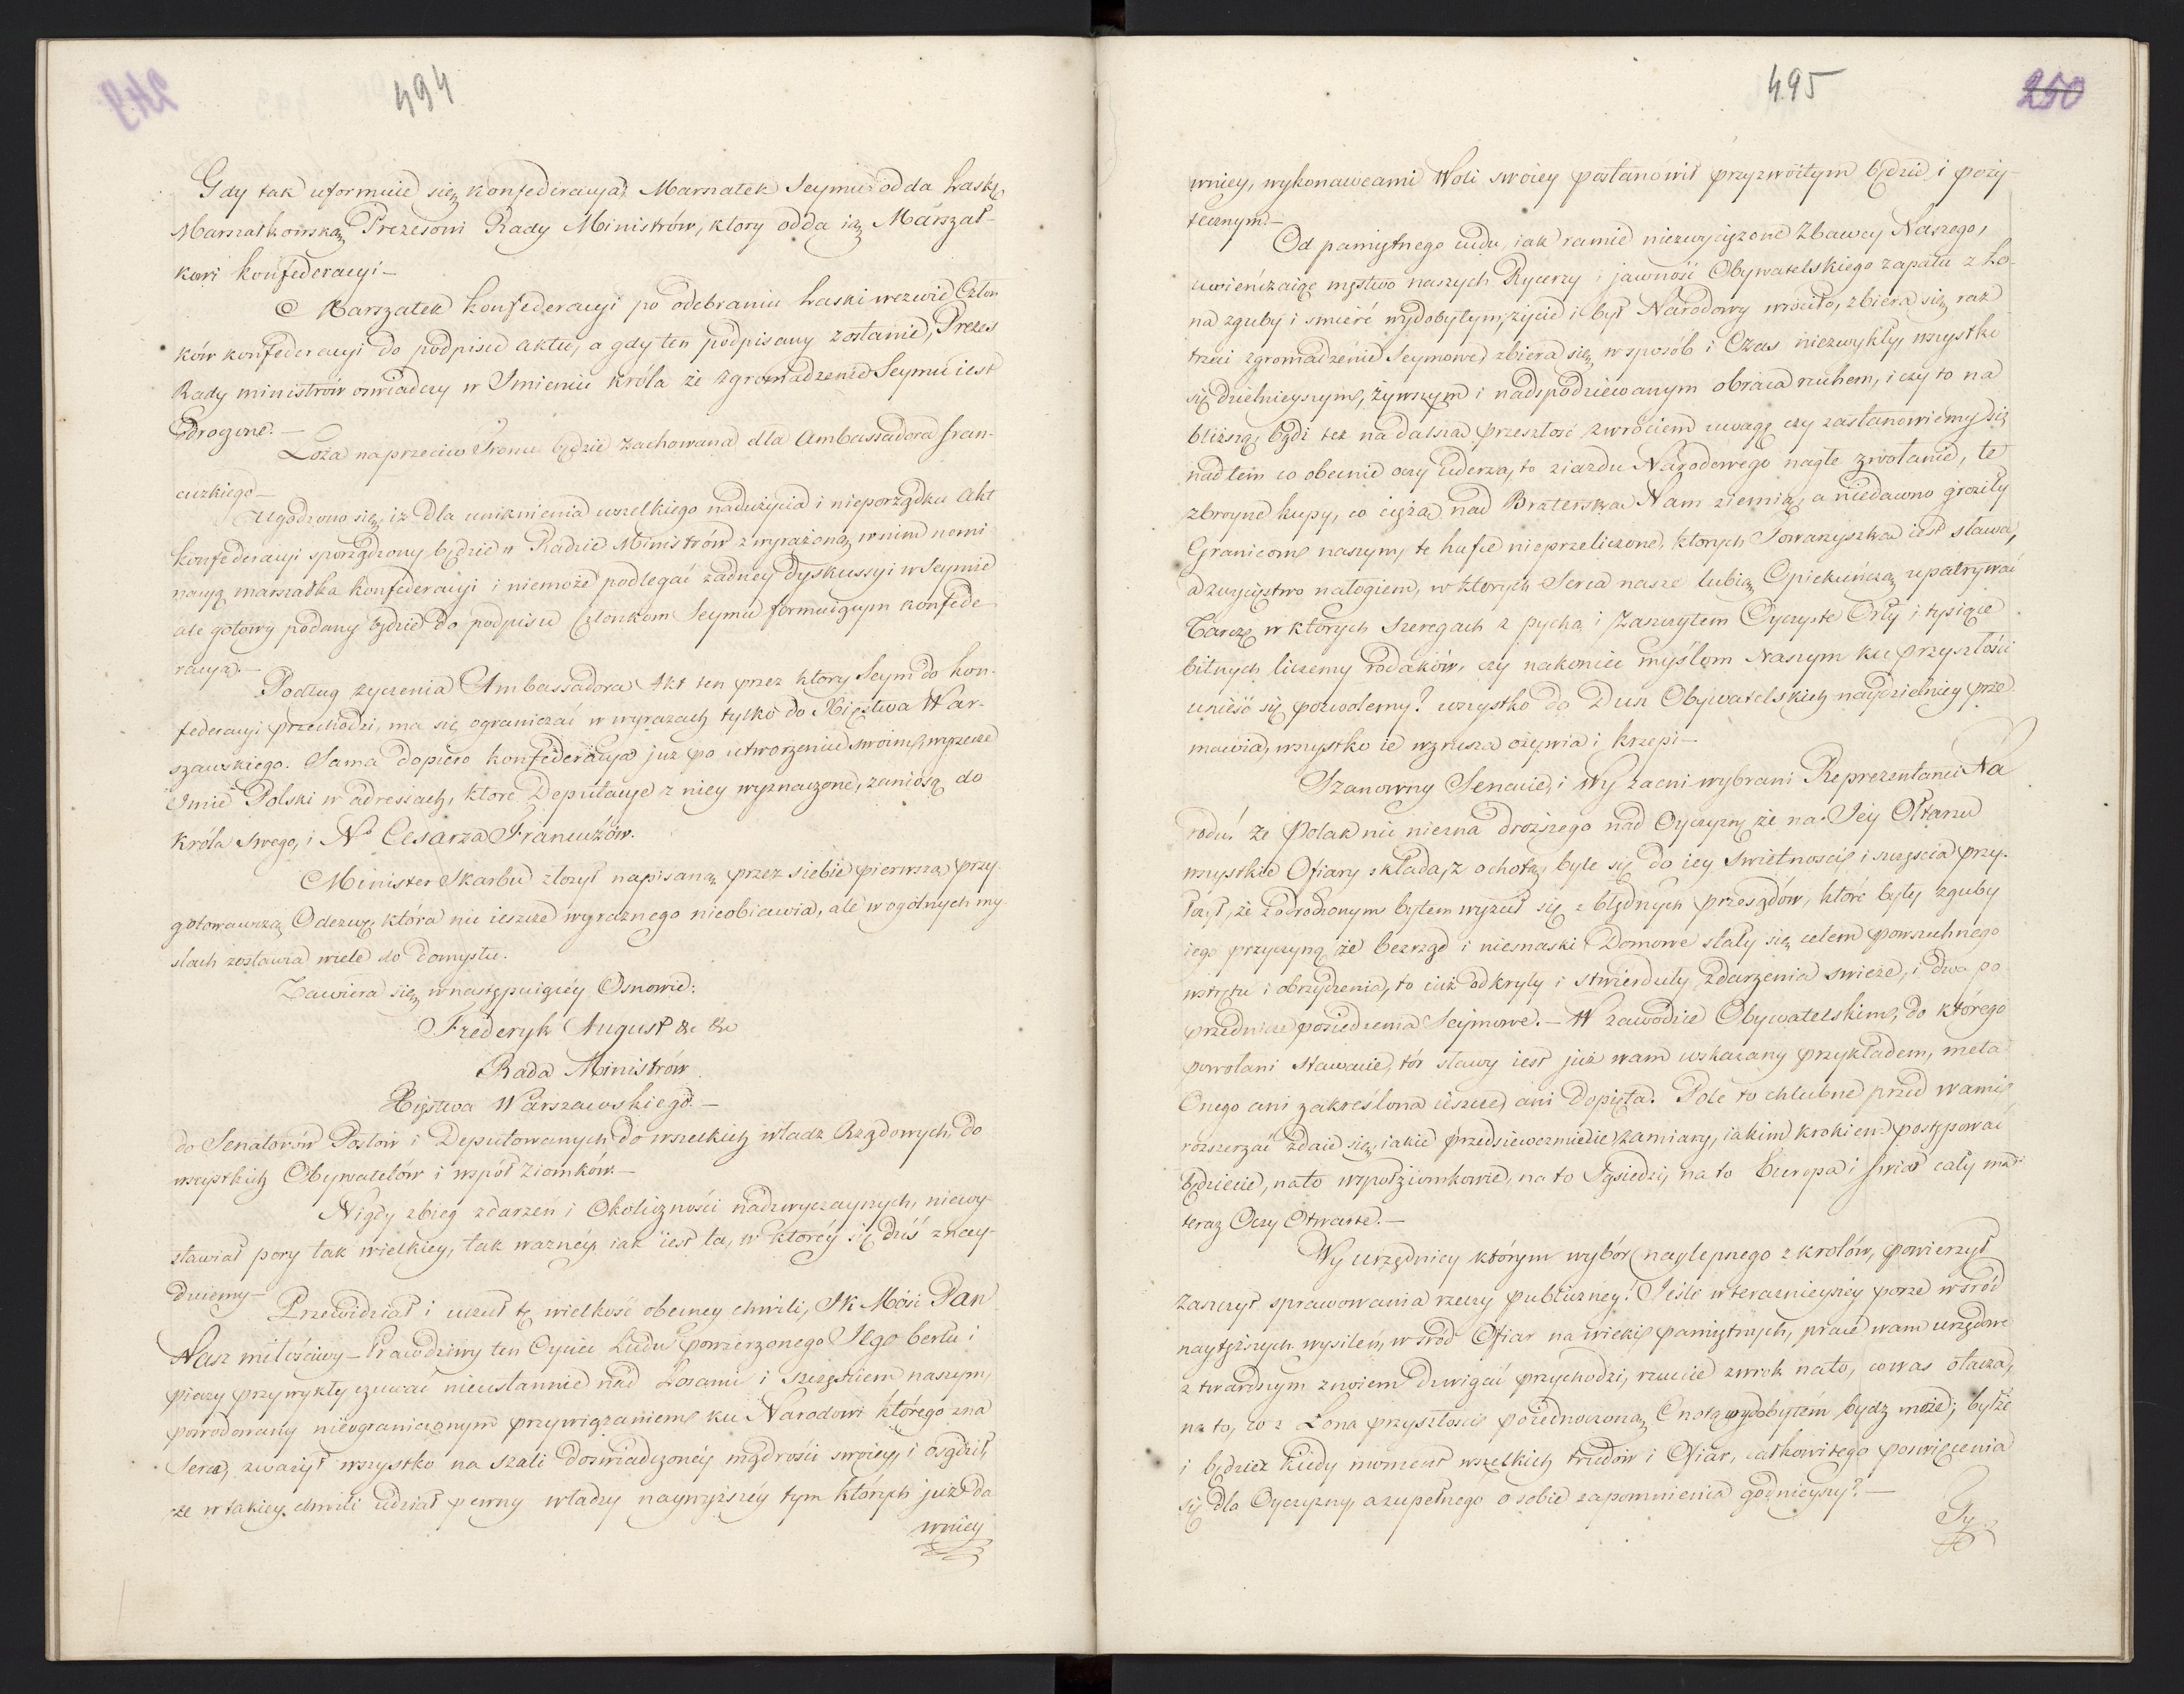 494
Gdy tak uformuie się konfederacya, Marszałek Seymu odda Laskę
Marszałkowską Prezesowi Rady Ministrów, ktory odda ią Marszał-
kowi konfederacyi —
Marszałek konfederacyi po odebraniu Laski wezwie Człon
ków konfederacyi do podpisu aktu, a gdy ten podpisany zostanie, Prezes
Rady ministrów oswiadczy w Imieniu króla że zgromadzenie Seymu iest
odroczone. —
Loża naprzeciw Tronu będzie zachowana dla Ambassadora fran-
cuzkiego —
Ugodzono się, iż dla uniknienia wszelkiego nadużycia i nieporządku akt
konfederacyi sporządzony będzie w Radzie Ministrów z wyrażoną w nim nomi-
nacyą marszałka konfederacyi i niemoże podlegać żadney dyskussyi w Seymie
ale gotowy podany będzie do podpisu Członkom Seymu formuiącym konfede-
racyą. —
Podług życzenia Ambassadora Akt ten przez ktory Seym do kon-
federacyi przechodzi, ma się ograniczać w wyrazach tylko do Xięstwa War-
szawskiego. Sama dopiero konfederacya już po utworzeniu swoim, wyrzecze
Imie Polski w adressach, ktore Deputacye z niey wyznaczone, zaniosą do
króla swego, i No Cesarza Francuzów.
Minister Skarbu złożył napisaną przez siebie pierwszą przy-
gotowawczą Odezwę, która nic ieszcze wyraznego nieobiawia, ale w ogolnych my-
slach zostawia wiele do domysłu.
Zawiera się w następuiącey Osnowie:
Frederyk August &c &c
Rada Ministrów
Xięstwa Warszawskiego. —
do Senatorów Posłów i Deputowanych, do wszelkich władz Rządowych, do
wszystkich Obywatelów i współ Ziomków. —
Nigdy zbieg zdarzeń i Okoliczności nadzwyczaynych, niewy-
stawiał pory tak wielkiey, tak ważnéy iak iest ta, w któréy się dziś znay-
duiemy —
Przewidział i uczuł tę wielkość obecney chwili, JK Mość Pan
Nasz miłościwy — Prawdziwy ten Oyciec Ludu powierzonego Jego berłu i
pieczy przywykły czuwać nieustannie nad Losami i szczęściem naszym,
powodowany nieograniczonym przywiązaniem ku Narodowi którego zna
Serca, zważył wszystko na szali doświadczonéy mądrości swoiey, i osądził,
że w takiey chwili udział pewny władzy naywyższéy tym których już da
wniey
495
250
wniey, wykonawcami Woli swoiey postanowił przyzwoitym będzie i poży-
tecznym. —
Od pamiętnego cudu, iak ramie niezwyciężone Zbawcy Naszego,
uwieńczaiąc męstwo naszych Rycerzy i jawność Obywatelskiego zapału z Ło-
na zguby i smierć wydobytym, życie i był Narodowy wróciło, zbiera się raz
trzeci zgromadzenie Seymowe, zbiera się w sposób i Czas niezwykły, wszystko
się dzielnieyszym, żywszym i nadspodziewanym obraca ruchem, i czy to na
bliższą, bądź też na dalszą przeszłość zwrociem uwagę czy zastanowiemy się
nad tem co obecnie oczy uderza, to ziazdu Narodowego nagłe zwołanie, te
zbroyne kupy, co ciężą nad Braterską Nam ziemią, a niedawno groziły
Granicom naszym, te hufce nieprzeliczone, ktorych Towarzyszką iest sława,
a zwycięstwo nałogiem, w ktorych Serca nasze lubią Opiekuńczą upatrywać
Tarczę w których szeregach z pychą i Zaszczytem Oyczyste Orły i tysiące
bitnych liczemy rodaków, czy nakoniec myślom Naszym ku przyszłości
unieść się pozwolemy? wszystko do Dusz Obywatelskich naydzielniey prze-
mawia, wszystko ie wzrusza ożywia i krzepi —
Szanowny Senacie, i Wy zacni wybrani Reprezentanci Na
rodu! że Polak nic niezna droższego nad Oyczyznę że na Jey Ołtarzu
wszystkie Ofiary składa, z ochotą, byle się do iey swietności i szczęscia przy-
łożył, że z odrodzonym bytem wyzuł się z błędnych przesądów, które były zguby
iego przyczyną że bezrząd i niesnaski Domowe stały się celem powszechnego
wstrętu i obrzydzenia, to iuż odkryły i stwierdziły Zdarzenia świeże, i dwa po
przednicze posiedzenia Seymowe. — W zawodzie Obywatelskim, do którego
powołani stawacie, tór sławy iest już wam wskazany przykładem, meta
Onego ani zakréślona ieszcze, ani dopięta. Pole to chlubne przed wami
rozszerzać zdaie się, iakie przedsiewezmiecie zamiary, iakim krokiem postępować
będziecie, na to wspołziomkowie, na to Sąsiedzi, na to Europa i świat cały ma
teraz Oczy Otwarte. —
Wy urzędnicy którym wybór naylepszego z krolów, powierzył
Zaszczyt sprawowania rzeczy publiczney! Jeśli w teraznieyszéy porze wśród
naytęższych wysileń, w śród Ofiar na wieki pamiętnych, prace wam urzędowe
z twardszym znoiem dzwigać przychodzi, rzućcie wzrok na to, co was otacza,
na to, co z Łona przyszłości poiednoczoną Cnotą wydobytém bydz może; byłże
i będzież kiedy moment wszelkich trudów i Ofiar, całkowitego poswięcenia
się dla Oyczyzny, a zupełnego o sobie zapomnienia godnieyszy? —
Ty